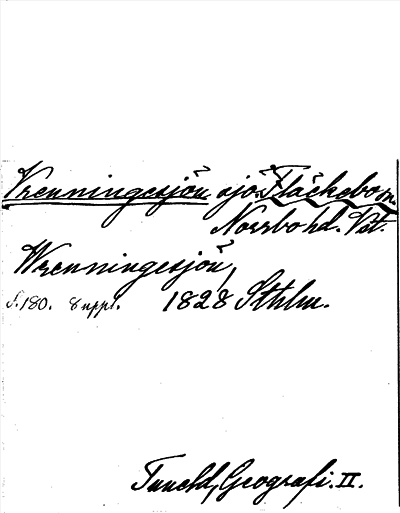 Vrenningesjön sjö Fläckebo sn.
Norrbo hd. Vst.
Wrenningesjön,
S. 180. 8 uppl. 1828 Sthlm.
Tuneld, Geografi. II.